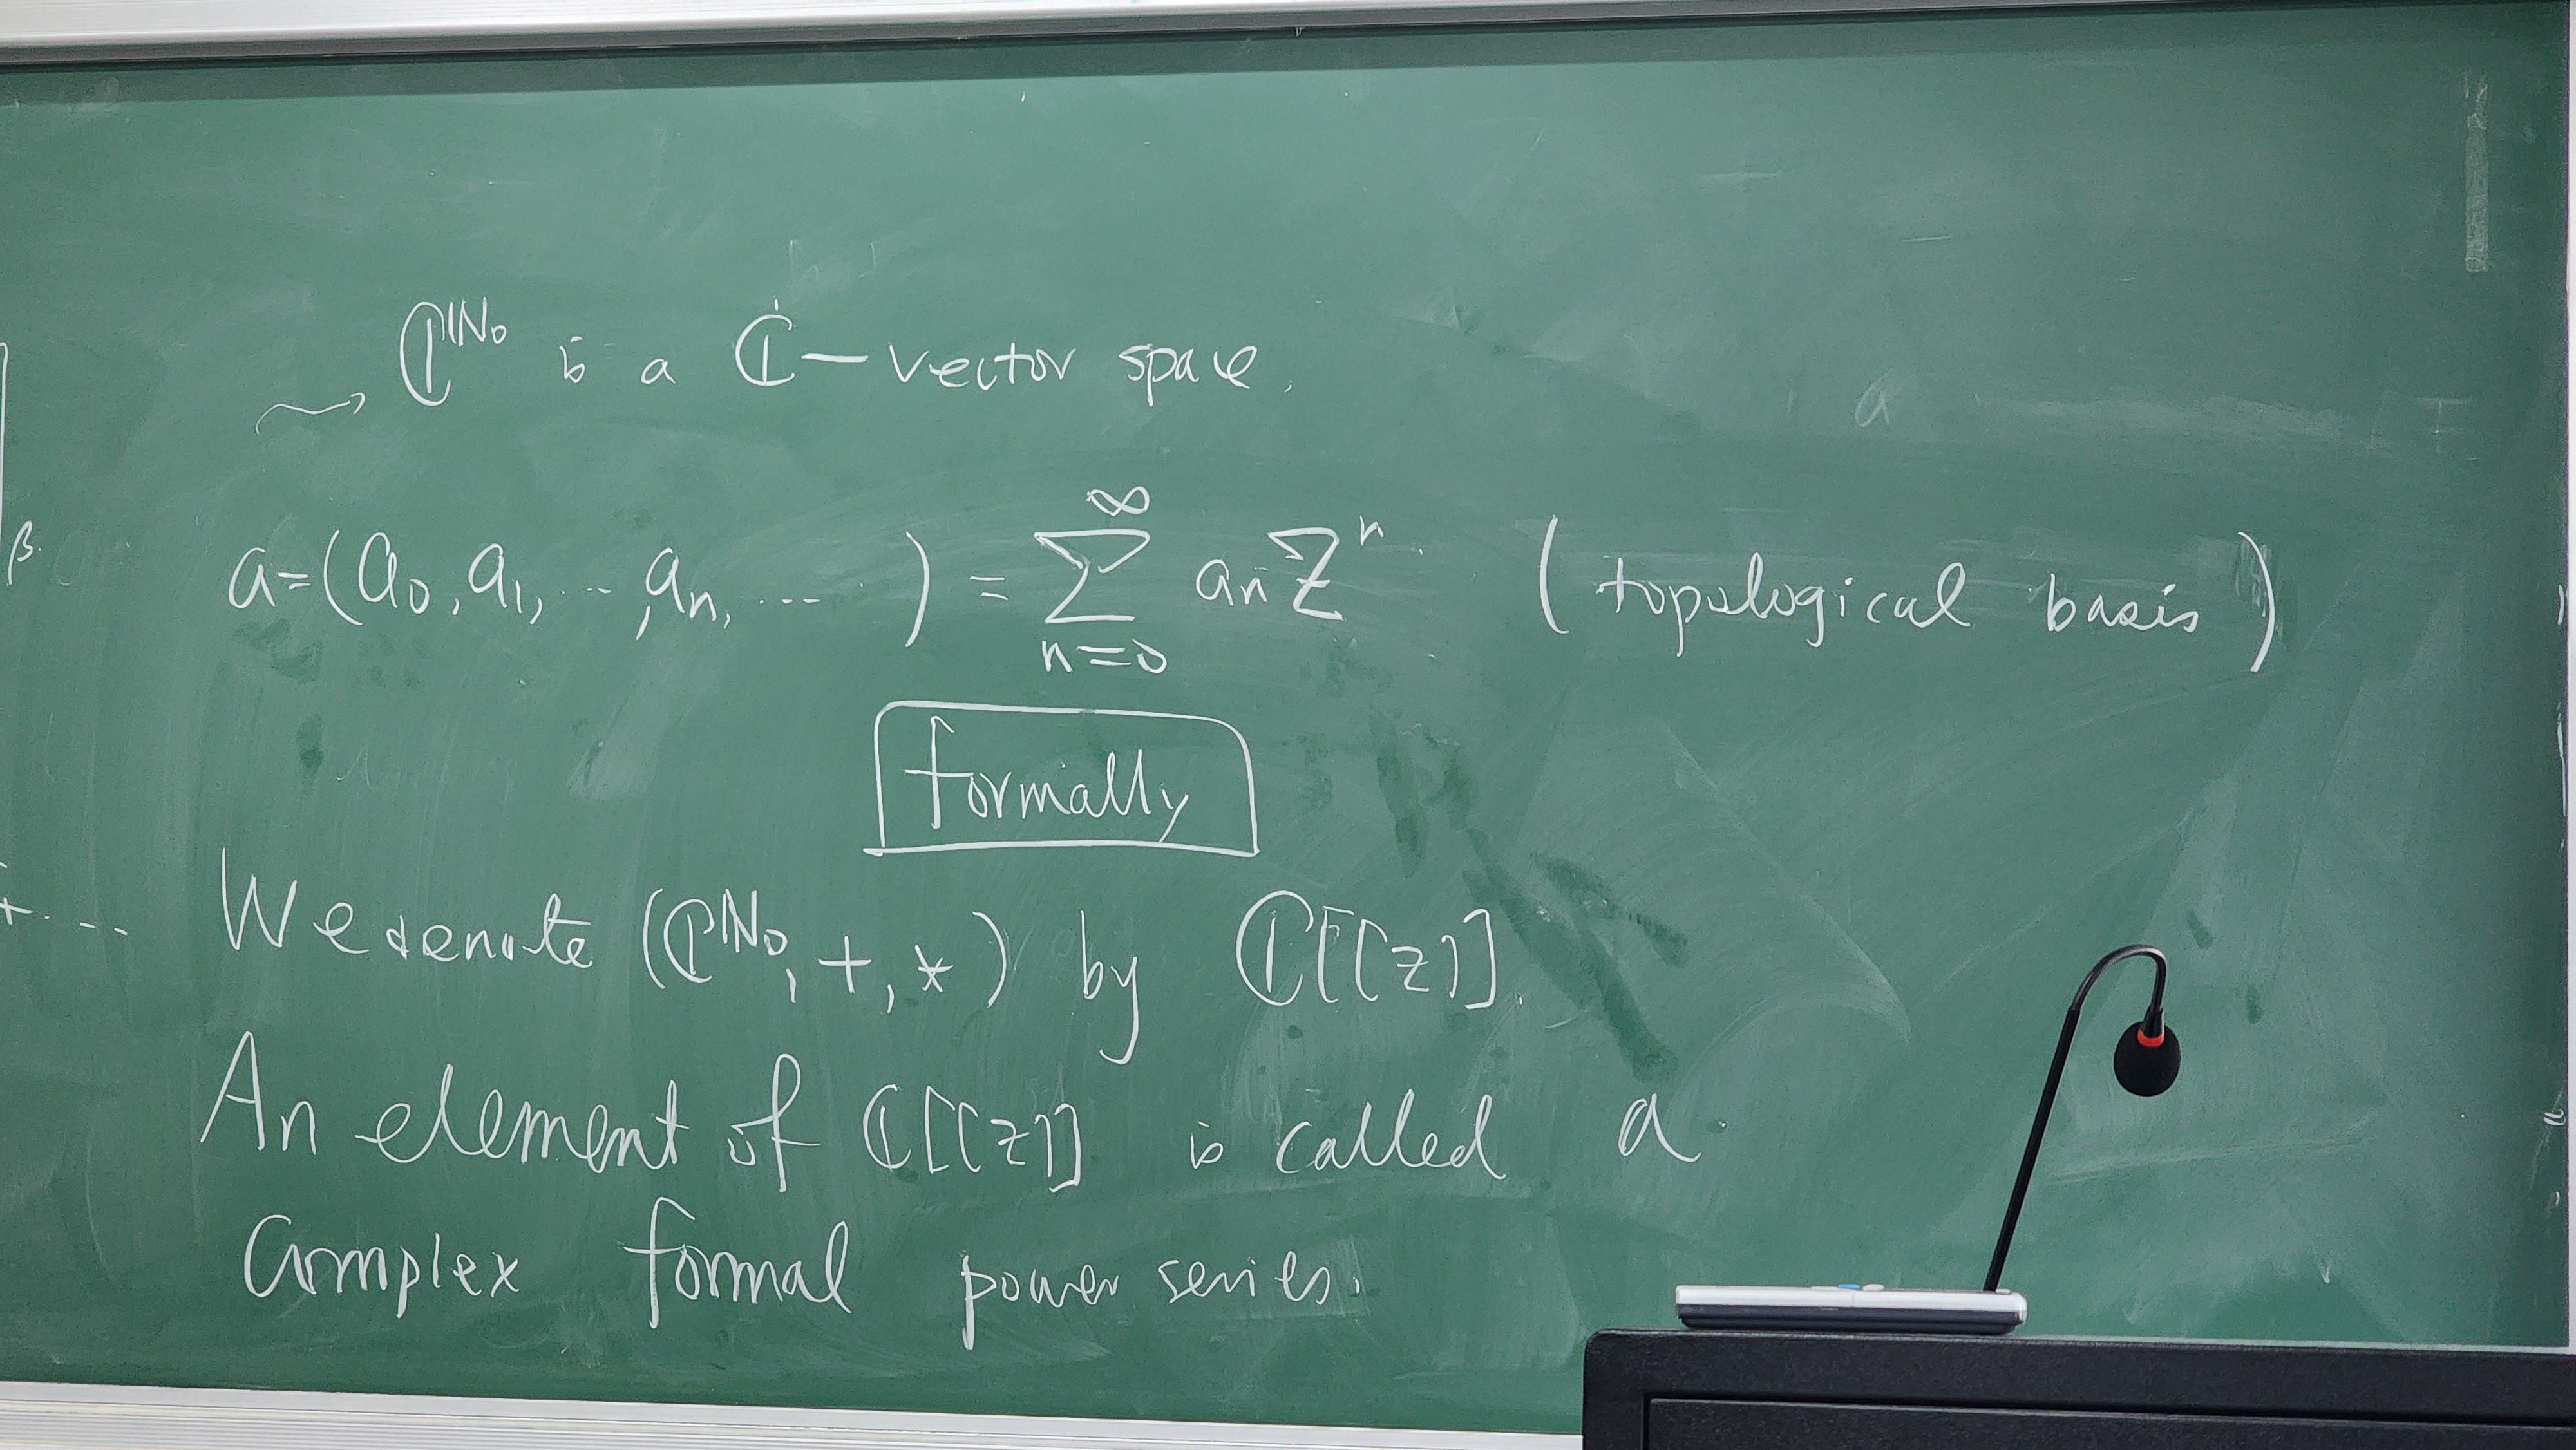 ⇝ ℂ^ℕ₀ is a ℂ – vector space.
a = (a₀, a₁, ..., aₙ, ... ) = ∑_{n=0}^{∞} aₙ zⁿ. (topological basis)
formally
We denote (ℂ^ℕ₀, +, *) by ℂ[[z]].
An element of ℂ[[z]] is called a
complex formal power series.
β.
+ ...